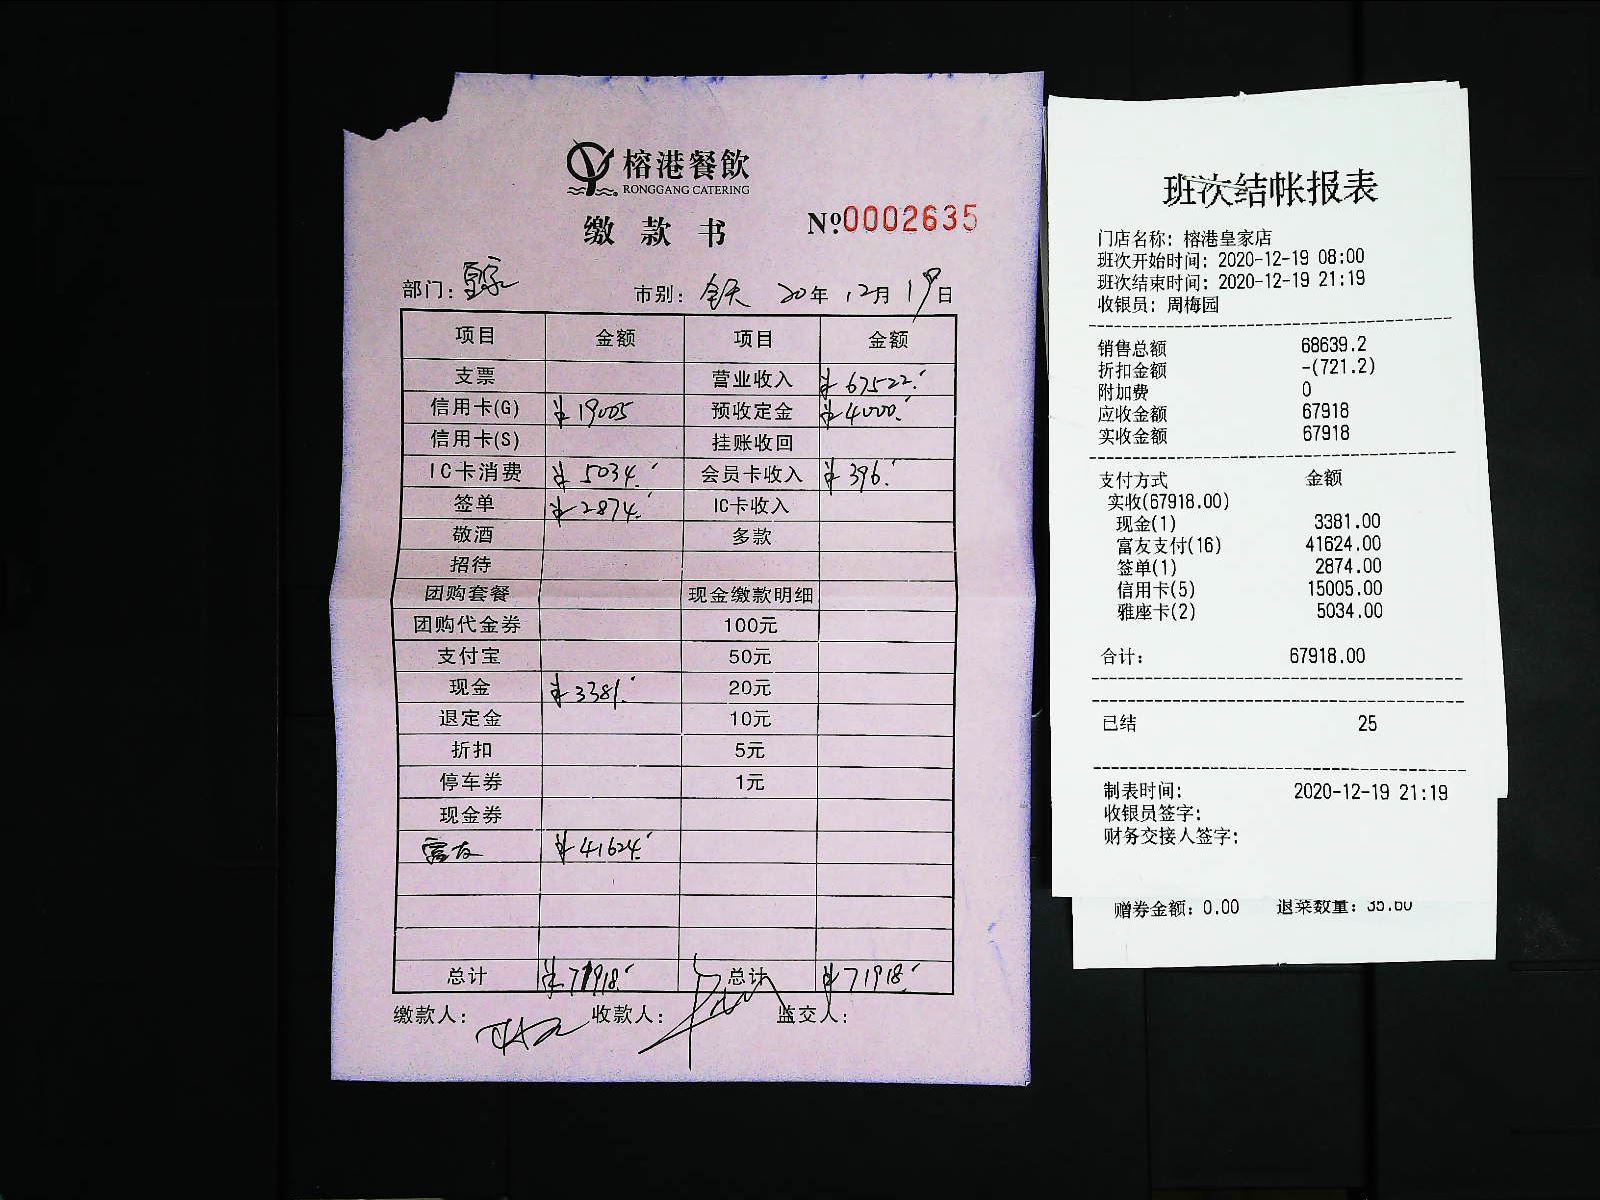 榕港餐飲
RONGGANG CATERING
缴款书 №0002635
部门：皇家 市别：全天 20年12月19日
项目 金额 项目 金额
支票 营业收入 ¥67522.
信用卡(G) ¥19005 预收定金 ¥4000.
信用卡(S) 挂账收回
IC卡消费 ¥5034. 会员卡收入 ¥396.
签单 ¥2874. IC卡收入
敬酒 多款
招待
团购套餐 现金缴款明细
团购代金券 100元
支付宝 50元
现金 ¥3381. 20元
退定金 10元
折扣 5元
停车券 1元
现金券
富友 ¥41624.
总计 ¥71918. 总计 ¥71918.
缴款人： 收款人： 监交人：
班次结帐报表
门店名称: 榕港皇家店
班次开始时间: 2020-12-19 08:00
班次结束时间: 2020-12-19 21:19
收银员: 周梅园
销售总额 68639.2
折扣金额 -(721.2)
附加费 0
应收金额 67918
实收金额 67918
支付方式 金额
实收(67918.00)
现金(1) 3381.00
富友支付(16) 41624.00
签单(1) 2874.00
信用卡(5) 15005.00
雅座卡(2) 5034.00
合计: 67918.00
已结 25
制表时间: 2020-12-19 21:19
收银员签字:
财务交接人签字:
赠券金额: 0.00 退菜数量: 35.60